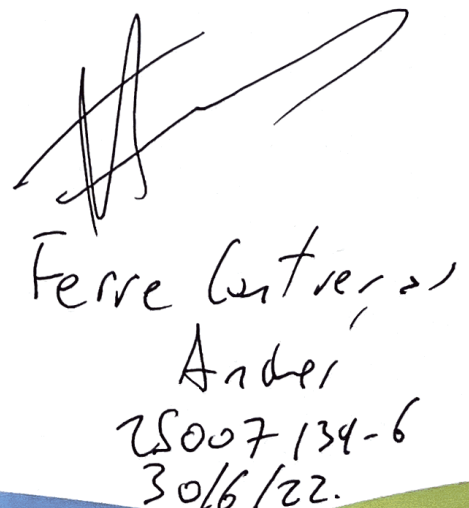 Ferre Contreras
Andrés
25007134-6
30/6/22.